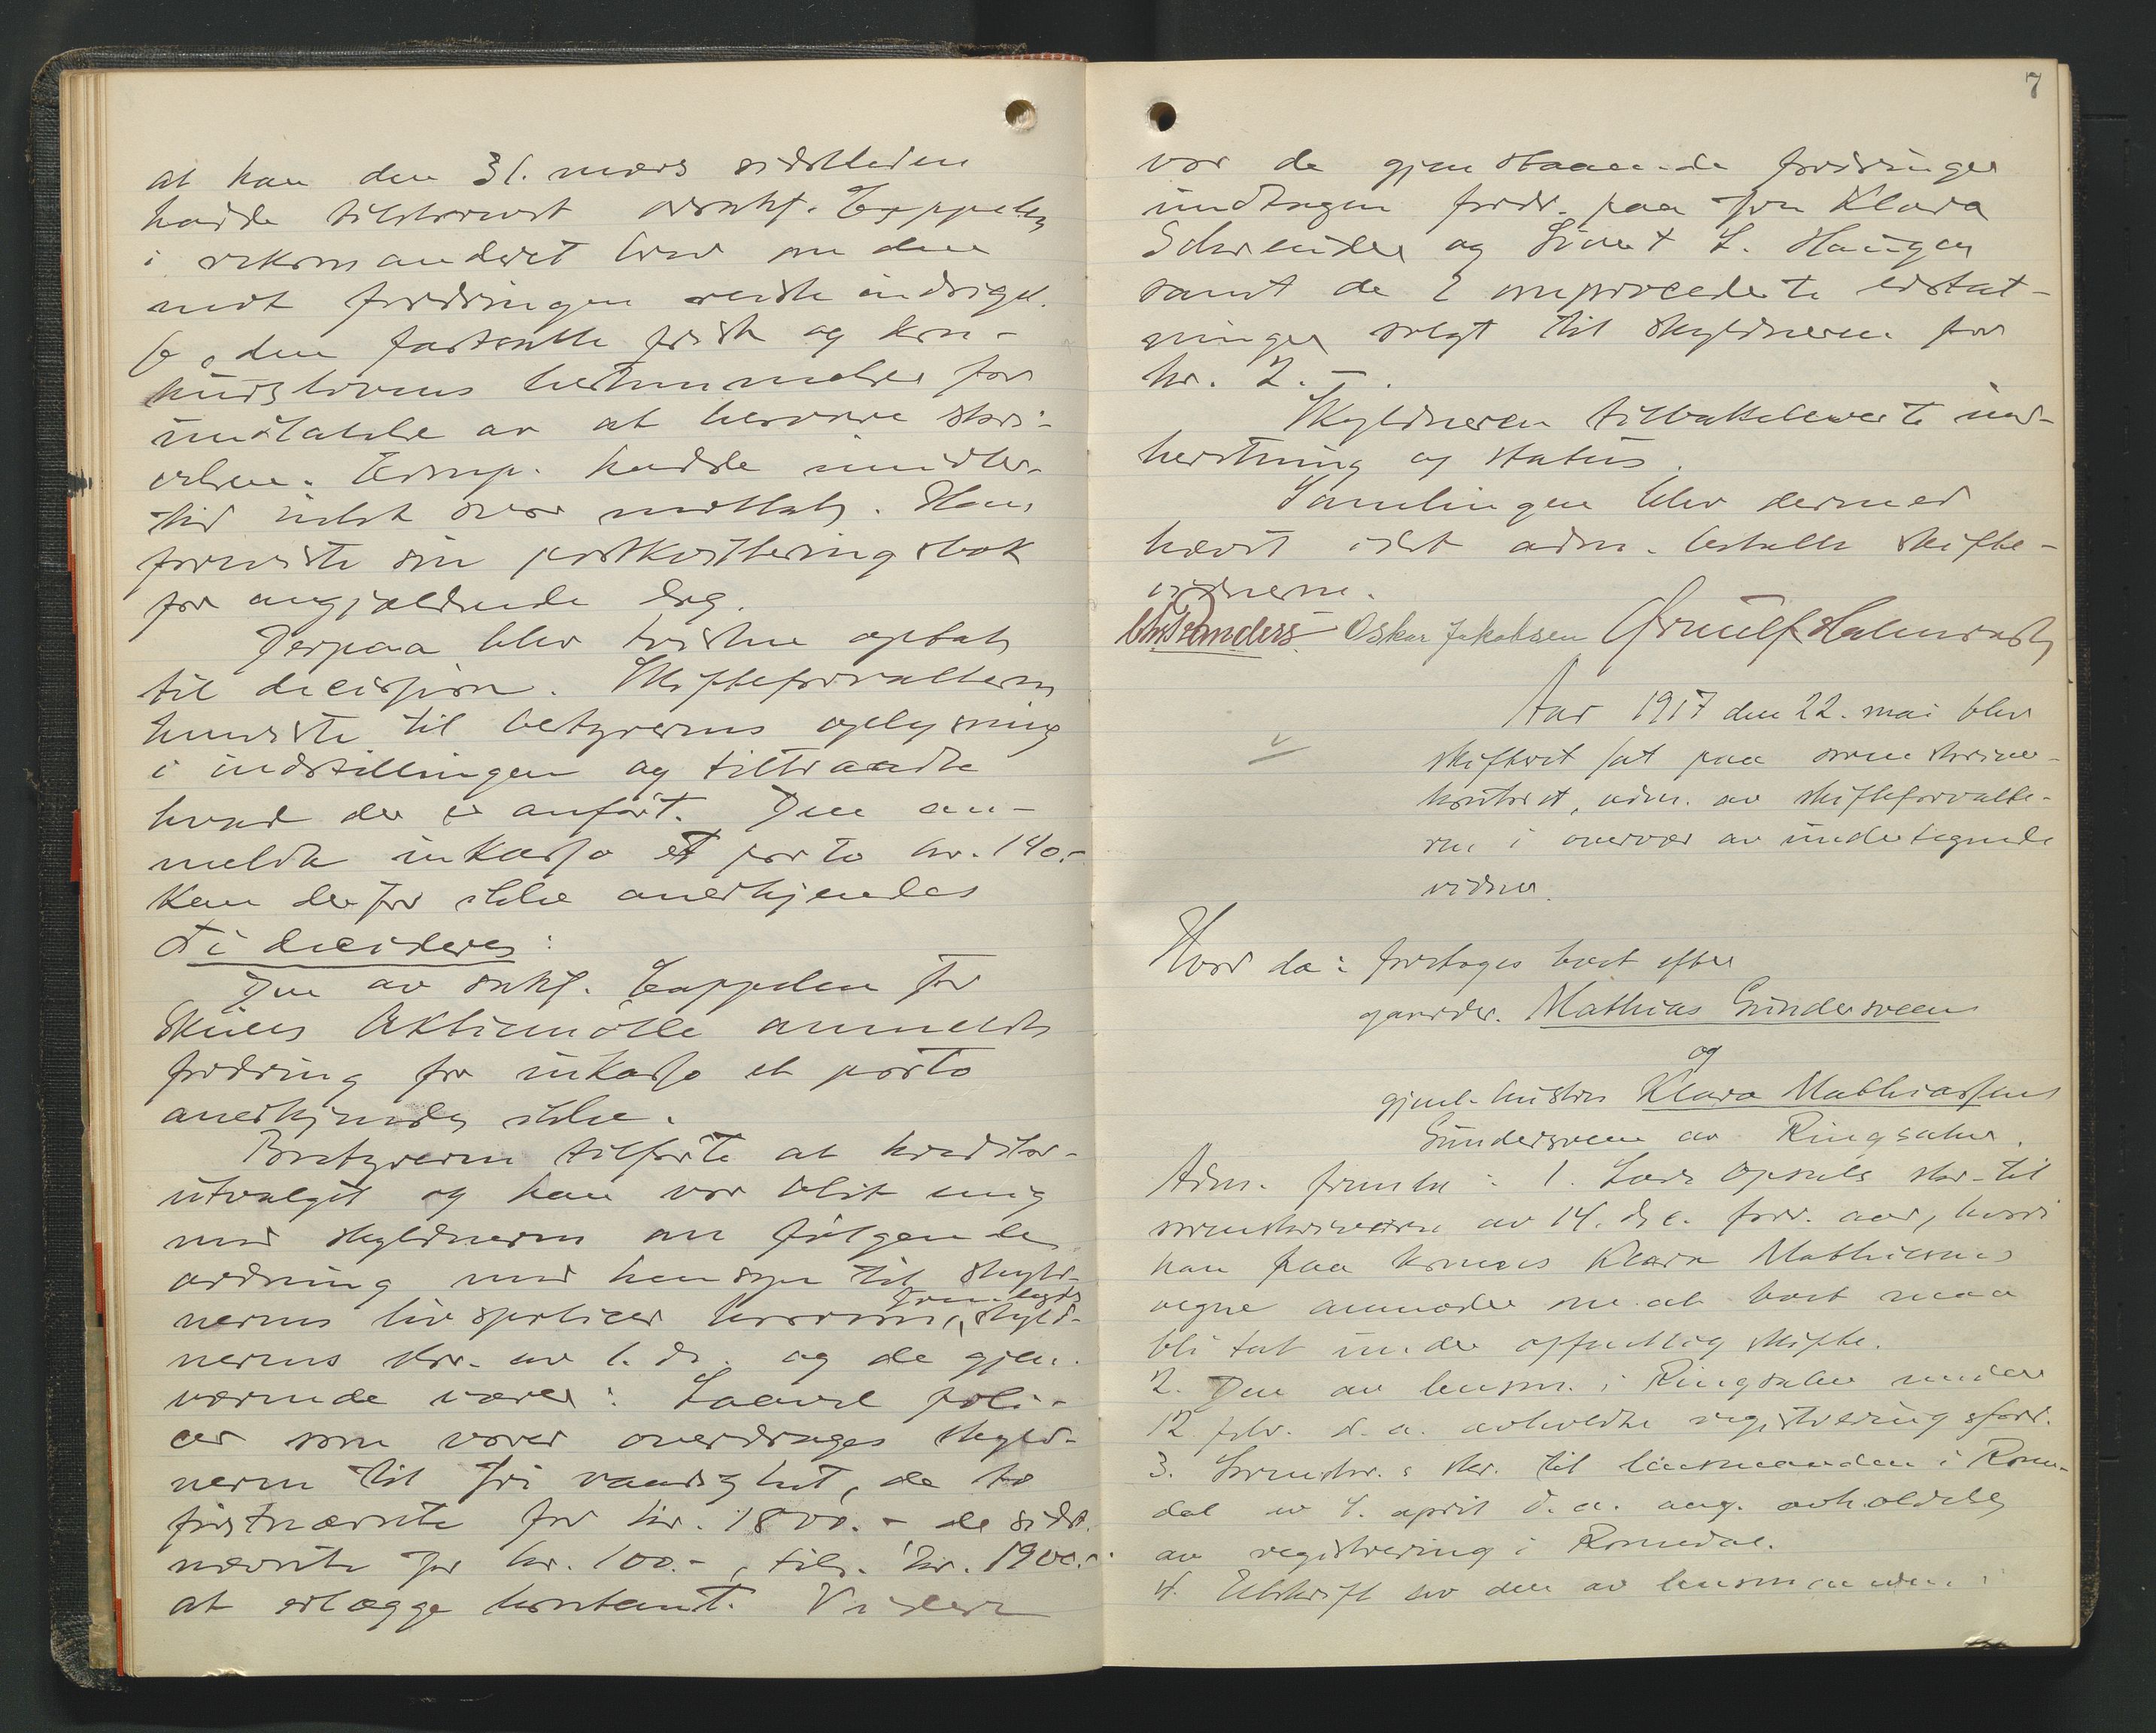 at han den 31. mars sidstleden
hadde tilskrevet orsakf. Cappelen
i rekomanderet brev om den
mot fordringen reiste indsigel-
se, den fastsatte frist og kon-
kurslovens bestemmelse for
undlatelse av at besvare skri-
velsen. Komp. hadde imidler-
tid intet svar mottat. Han
foreviste sin postkvitteringsbok
for angjældende dag.
Derpaa blev tvisten optat
til decision. Skifteforvalteren
henviste til bestyrerens oplysning
i indstillingen og tiltraadte
hvad der er anført. Den an-
meldte inkasso et porto kr. 140.-
kan derfor ikke anerkjendes
Ti decideres:
Den av sakf. Cappelen for
Skiens Aktiemølle anmeldte
fordring for inkasso et porto
anerkjendes ikke.
Bestyreren tilførte at kreditor-
utvalget og han var blit enig
med skyldneren om følgende
ordning med hensyn til skyld-
nerens livspolicer hvorom fremlagdes skyld-
nerens skr. av 1. ds. og de gjen-
værende varer: Saavel poli-
cer som varer overdrages skyld-
neren til fri raadighet, de to
førstnævnte for kr. 1800.- de sidst-
nævnte for kr. 100.-, tils. kr. 1900.-
at erlægge kontant. Videre
7
var de gjenstaaende fordringer
undtagen fordr. paa fru Klara
Schreuder og Sivert L. Haugen
samt de 2 omprocederte erstat-
ninger solgt til skyldneren for
kr. 2.-.
Skyldneren tilbakeleverte ind-
beretning og status.
Samlingen blev dermed
hævet idet adm. bestalte skifte-
vidnerne.
Chr. Randers Oskar Jakobsen Ørnulf Halmrast
Aar 1917 den 22. mai blev
skifteret sat paa sorenskriver-
kontoret, adm. av skifteforvalte-
ren i overvær av undertegnede
vidner.
Hvor da: foretoges boet efter
gaardbr. Mathias Gundersveen
og
gjenl. hustru Klara Mathiassen
Gundersveen av Ringsaker.
Adm. fremla: 1. Lars Opsals skr. til
sorenskriveren av 14. de c. forr. aar, hvori
han paa konens Klara Mathiesens
vegne anmoder om at boet maa
bli tat under offentlig skifte.
2. Den av lensm. i Ringsaker under
12 febr. d. a. avholdte registreringsforr.
3. Sorenskr.s skr. til lensmanden i Rome-
dal av 4. april d. a. ang. avholdelse
av registrering i Romedal.
4. Utskrift av den av lensmanden i